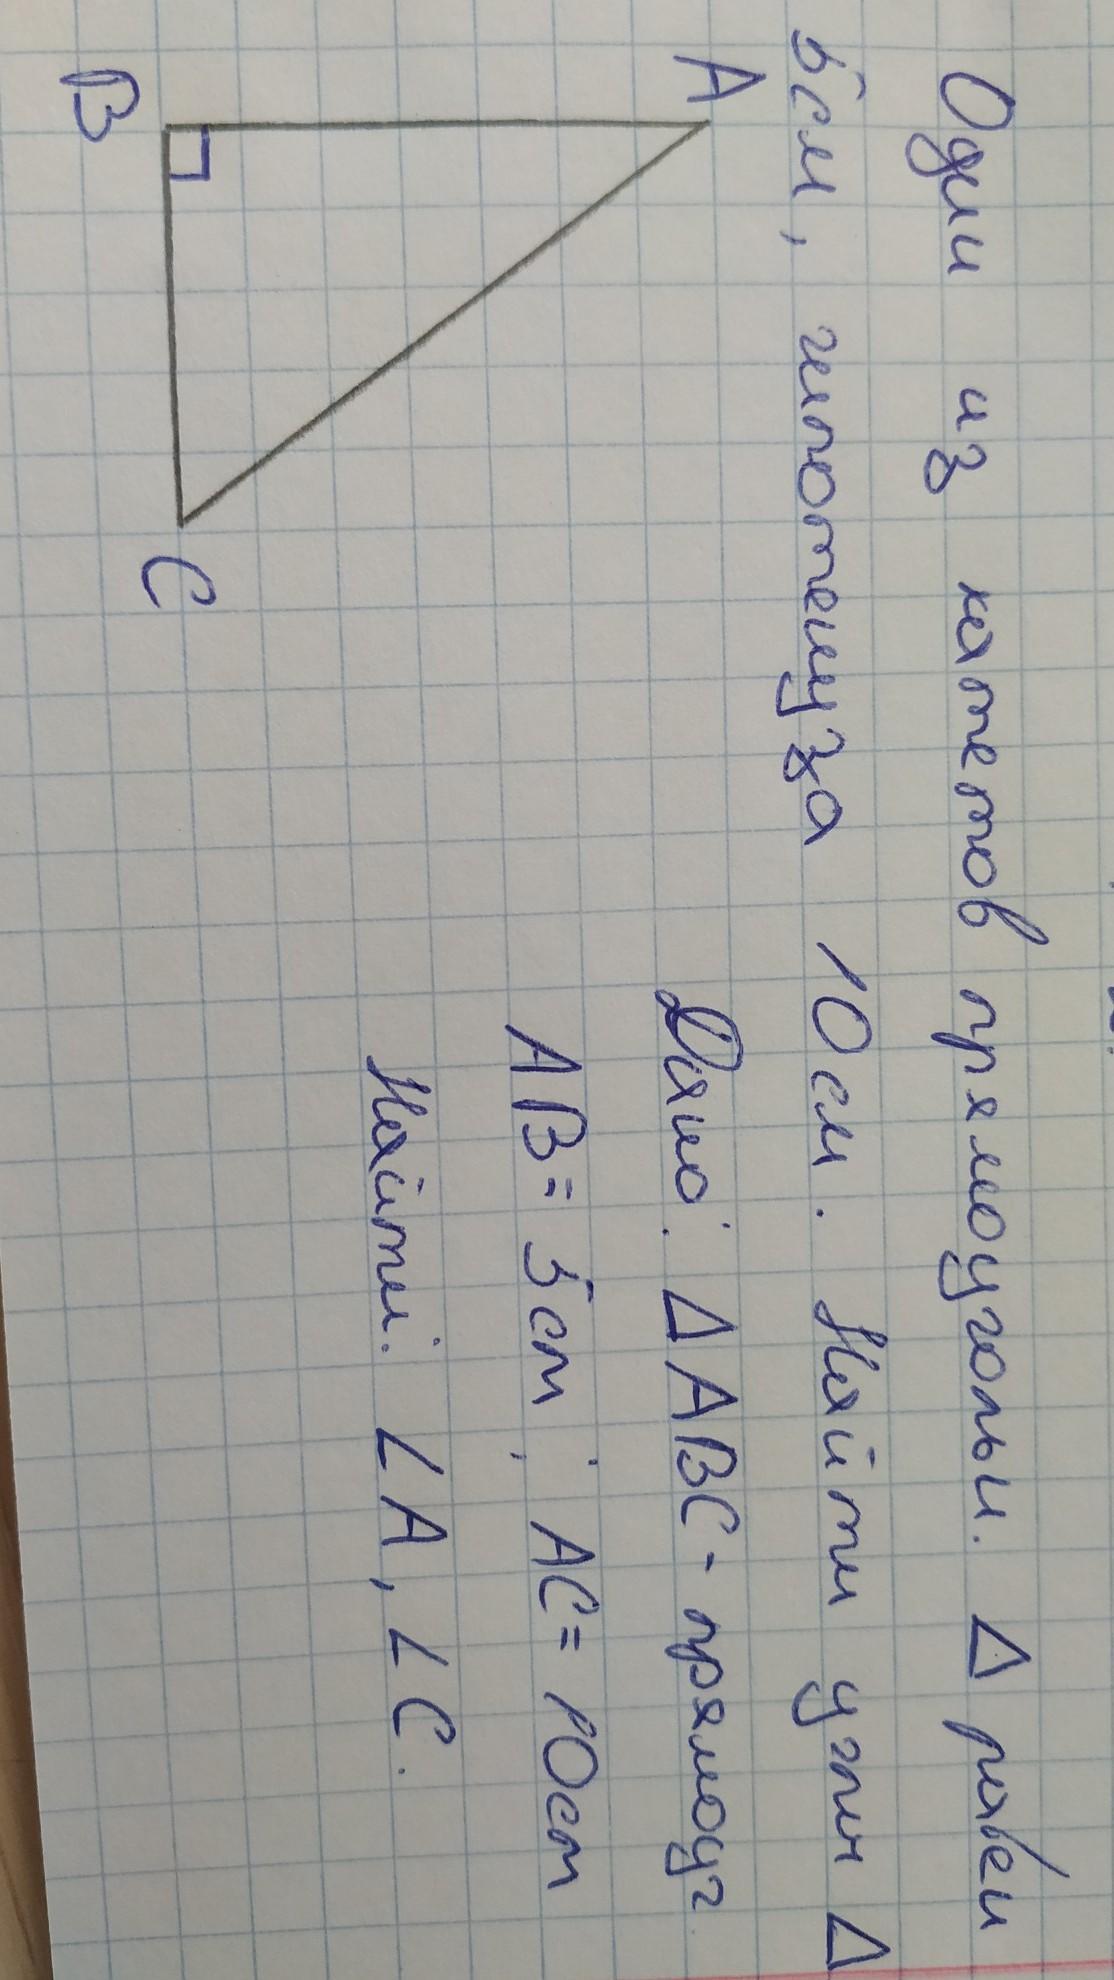 Один из катетов прямоугольн. Δ равен
5см, гипотенуза 10см. Найти углы Δ
Дано: Δ ABC - прямоуг.
AB = 5cm; AC = 10cm
Найти: ∠A, ∠C.
A
B
C